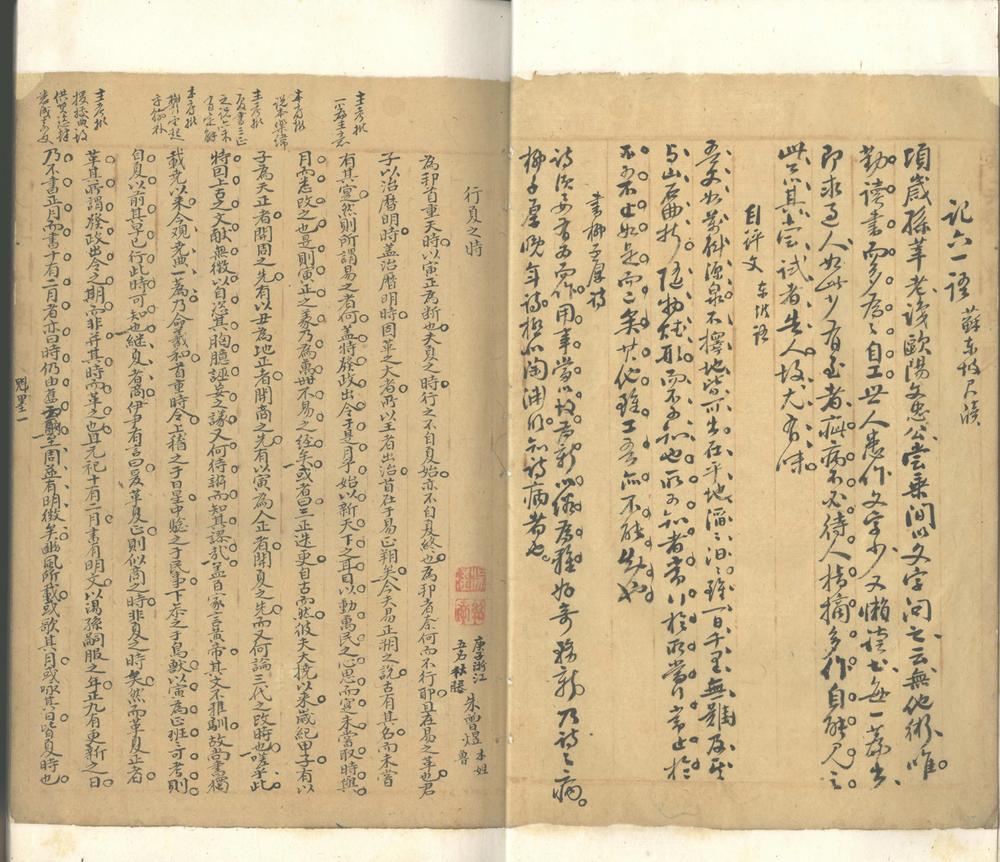 記六一語 蘇東坡尺牘
頃歲孫莘老識歐陽文忠公嘗乘間以文字問之云無他術唯
勤讀書而多為之自工世人患作文字少又懶讀書每一篇出
即求過人如此少有至者疵病不必待人指摘多作自能見之
此以其嘗試者告人故尤有味
自評文 東坡語
吾文如萬斛源泉不擇地皆可出在平地滔〻汩〻雖一日千里無難及其
與山石曲折隨物賦形而不可知也所可知者常行於所當行常止於
不可不止如是而已矣其他雖工吾亦不能知也
書柳子厚詩
詩須要有為而作用事當以故為新以俗為雅好奇務新乃詩之病
柳子厚晚年詩極似陶淵明知詩病者也
庚子浙江 朱曾煌 本姓魯
五名
行夏之時
為邦首重天時以寅正為斷也夫夏之時行之不自夏始亦不自夏終也為邦者奈何而不行耶且在易之革也君
子以治曆明時蓋治曆明時因革之大者所以王者出治首在于易正朔矣今夫易正朔之說古有其名而未嘗
有其寔然則所謂易之者何蓋將發政出令于是月乎始以新天下之耳目以動萬民之心思而寔未嘗取時與
月而悉改之也是則寅正之義乃為萬世不易之經矣或者曰三正迭更自古而然彼夫大撓以來歲紀甲子有以
子為天正者開周之先有以丑為地正者開商之先有以寅為人正者開夏之先而又何論三代之改時也嗟乎此
特回上古之文獻無徵以自恣其胸臆誣妄之談又何待辨而知其謬哉蓋百家言黃帝其文不雅馴故尚書獨
載堯以來今觀堯典一篇乃命羲和首重時令上稽之于日星中驗之于民事下參之于鳥獸以寅為正班〻可考則
自夏以前其早已行此時可知也繼夏者商伊尹有言曰爰革夏正則似商之時非夏之時矣然而革夏正者
革其所謂發政出令之期而非并其時而革之也且元祀十有二月書有明文以湯孫嗣服之年正九有更新之日
乃不書正月而書十有二月者亦曰時仍由舊云爾至周益有明徵矣豳風所載或歌其月或咏其日皆夏時也
魁墨一